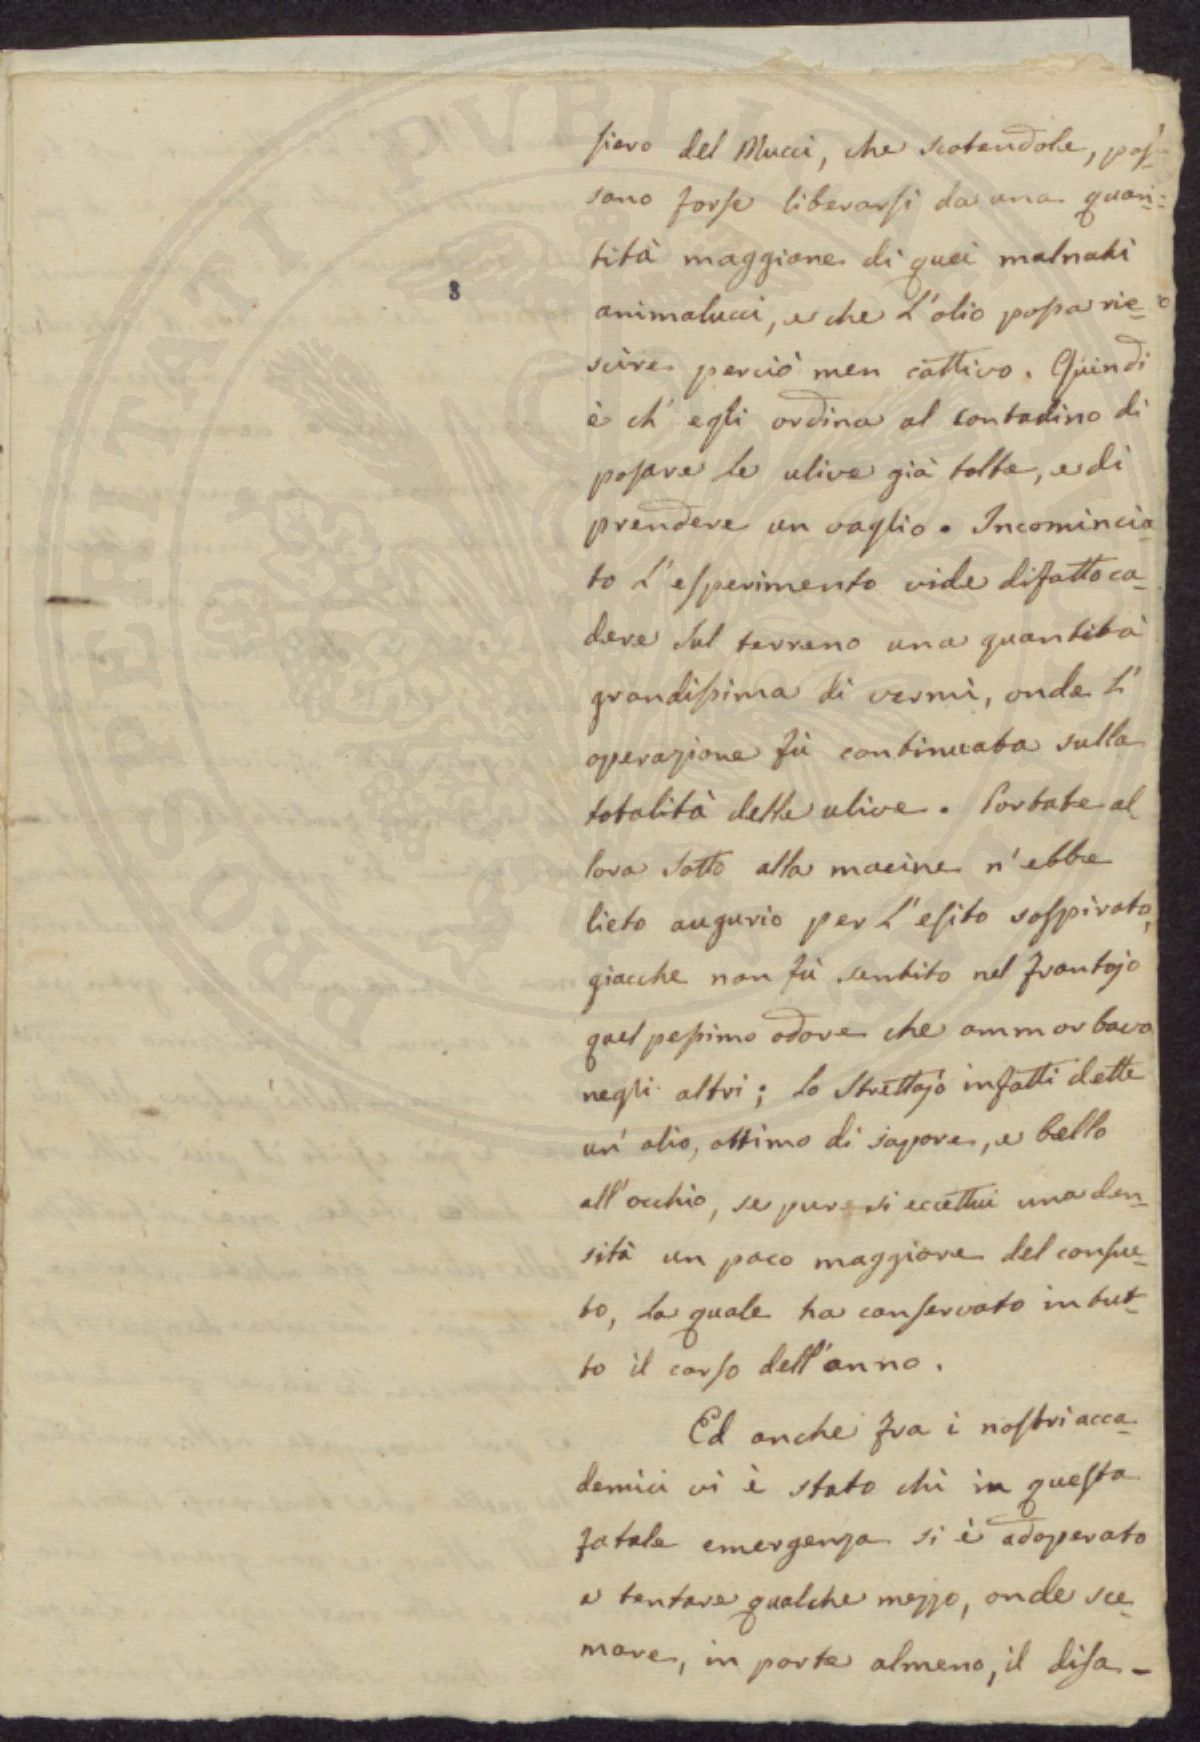 siero del Mucci, che scotendole, pos-
sano forse liberarsi da una quan-
tità maggiore di quei malnati
animalucci, e che l'olio possa rie-
scire perciò men cattivo. Quindi
è ch' egli ordina al contadino di
posare le ulive già tolte, e di
prendere un vaglio. Incomincia-
to l'esperimento vide difatto ca-
dere sul terreno una quantità
grandissima di vermi, onde l'
operazione fù continuata sulla
totalità delle ulive. Portate al-
lora sotto alla macine n'ebbe
lieto augurio per l'esito sospirato,
giacche non fù sentito nel frantojo
quel pessimo odore che ammorbava
negli altri; lo Strettojo infatti dette
un'olio, ottimo di sapore, e bello
all'occhio, se pure si eccettui una den-
sità un poco maggiore del consue-
to, la quale ha conservato in tut-
to il corso dell'anno.
Ed anche fra i nostri acca-
demici vi è stato chi in questa
fatale emergenza si è adoperato
a tentare qualche mezzo, onde sce-
mare, in parte almeno, il disa-
8
PROSPERITATI PVBLICAE